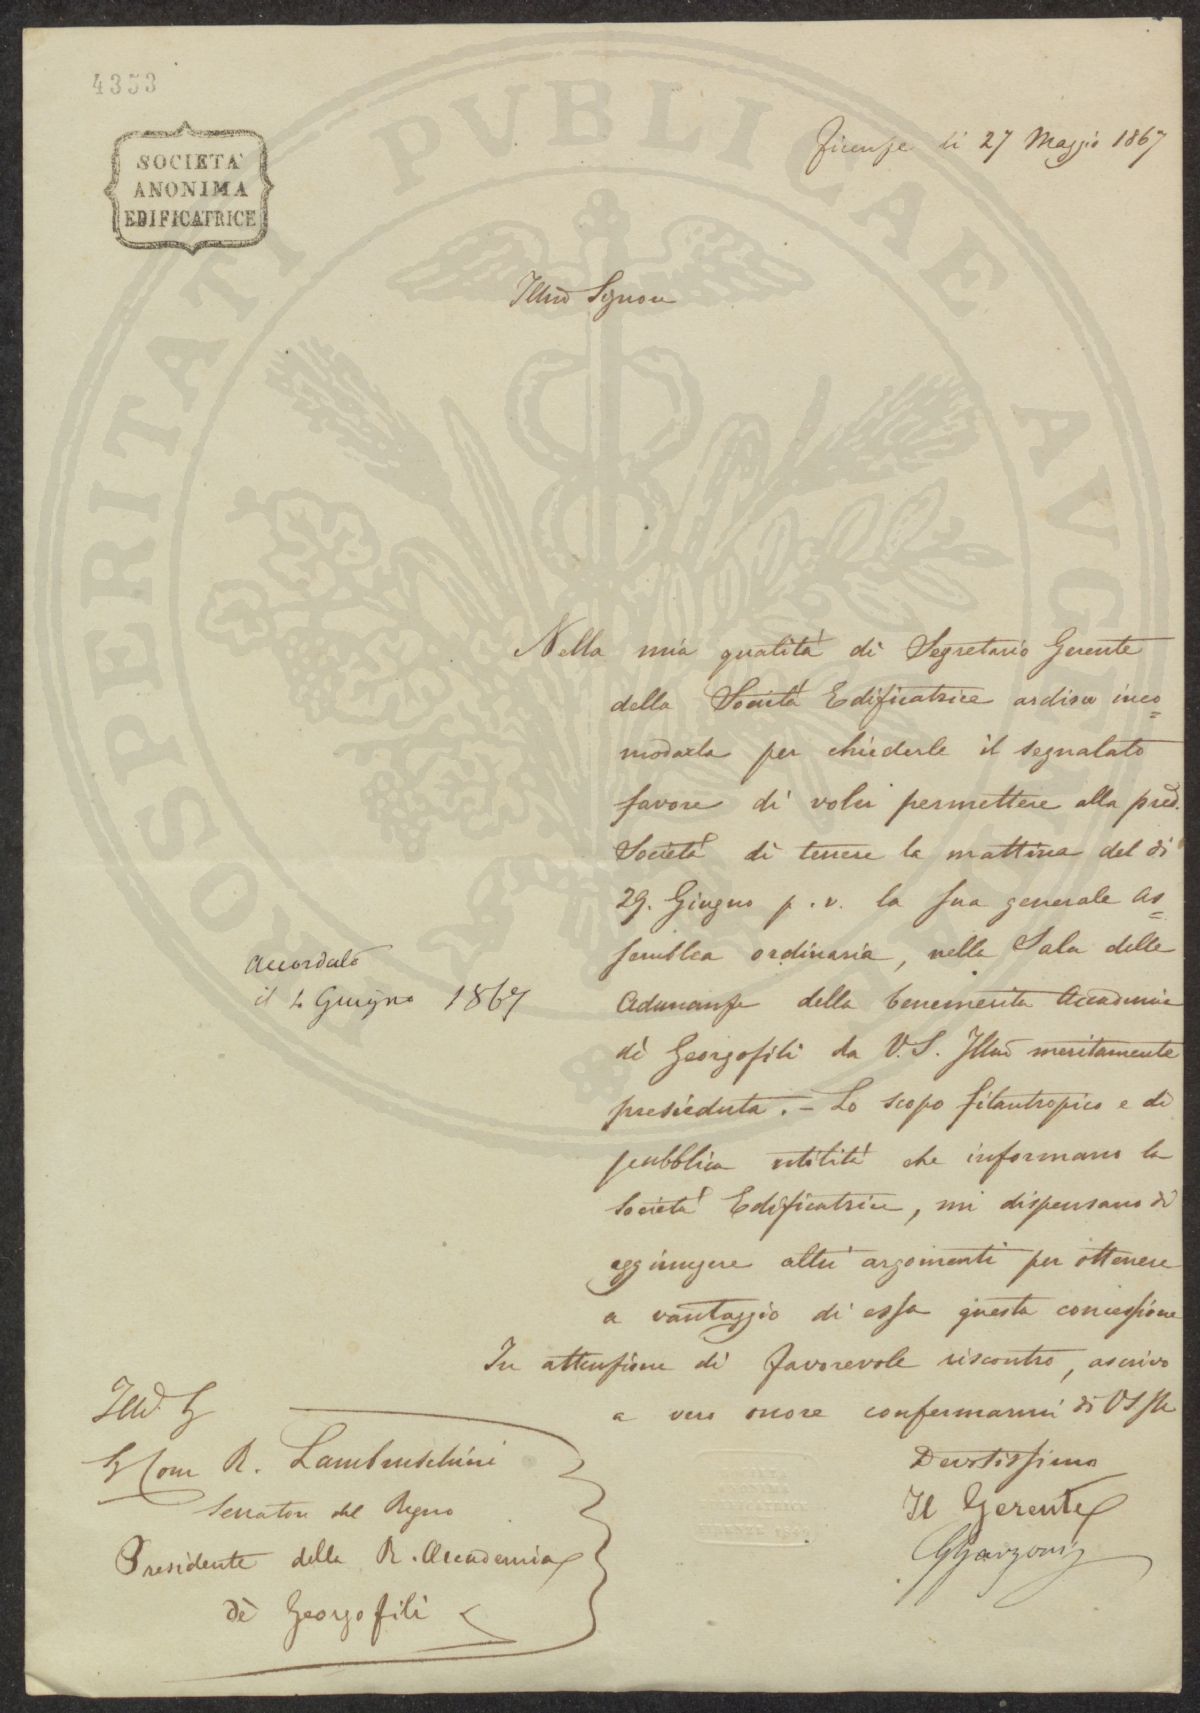 4353
SOCIETA'
ANONIMA
EDIFICATRICE
Firenze li 27 Maggio 1867
Illmo Signore
Nella mia qualità di Segretario Gerente
della Società Edificatrice ardisco inco=
modarla per chiederle il segnalato
favore di voler permettere alla pred.
Società di tenere la mattina del dì
29. Giugno p. v. la sua generale As=
semblea ordinaria, nella Sala delle
Adunanze della benemerita Accademia
dì Georgofili da V. S. Illma meritamente
presieduta. – Lo scopo filantropico e di
pubblica utilità che informano la
Società Edificatrice, mi dispensano di
aggiungere altri argomenti per ottenere
a vantaggio di essa questa concessione
In attenzione di favorevole riscontro, ascrivo
a vero onore confermarmi di VS Ill
Devotissimo
Il Gerente
GGarzoni
Accordato
il 4 Giugno 1867
Illmo. S
S Com R. Lambruschini
Senatore del Regno
Presidente della R. Accademia
dè Georgofili
PROSPERITATI PVBLICAE AVGENDAE
ANONIMA
EDIFICATRICE